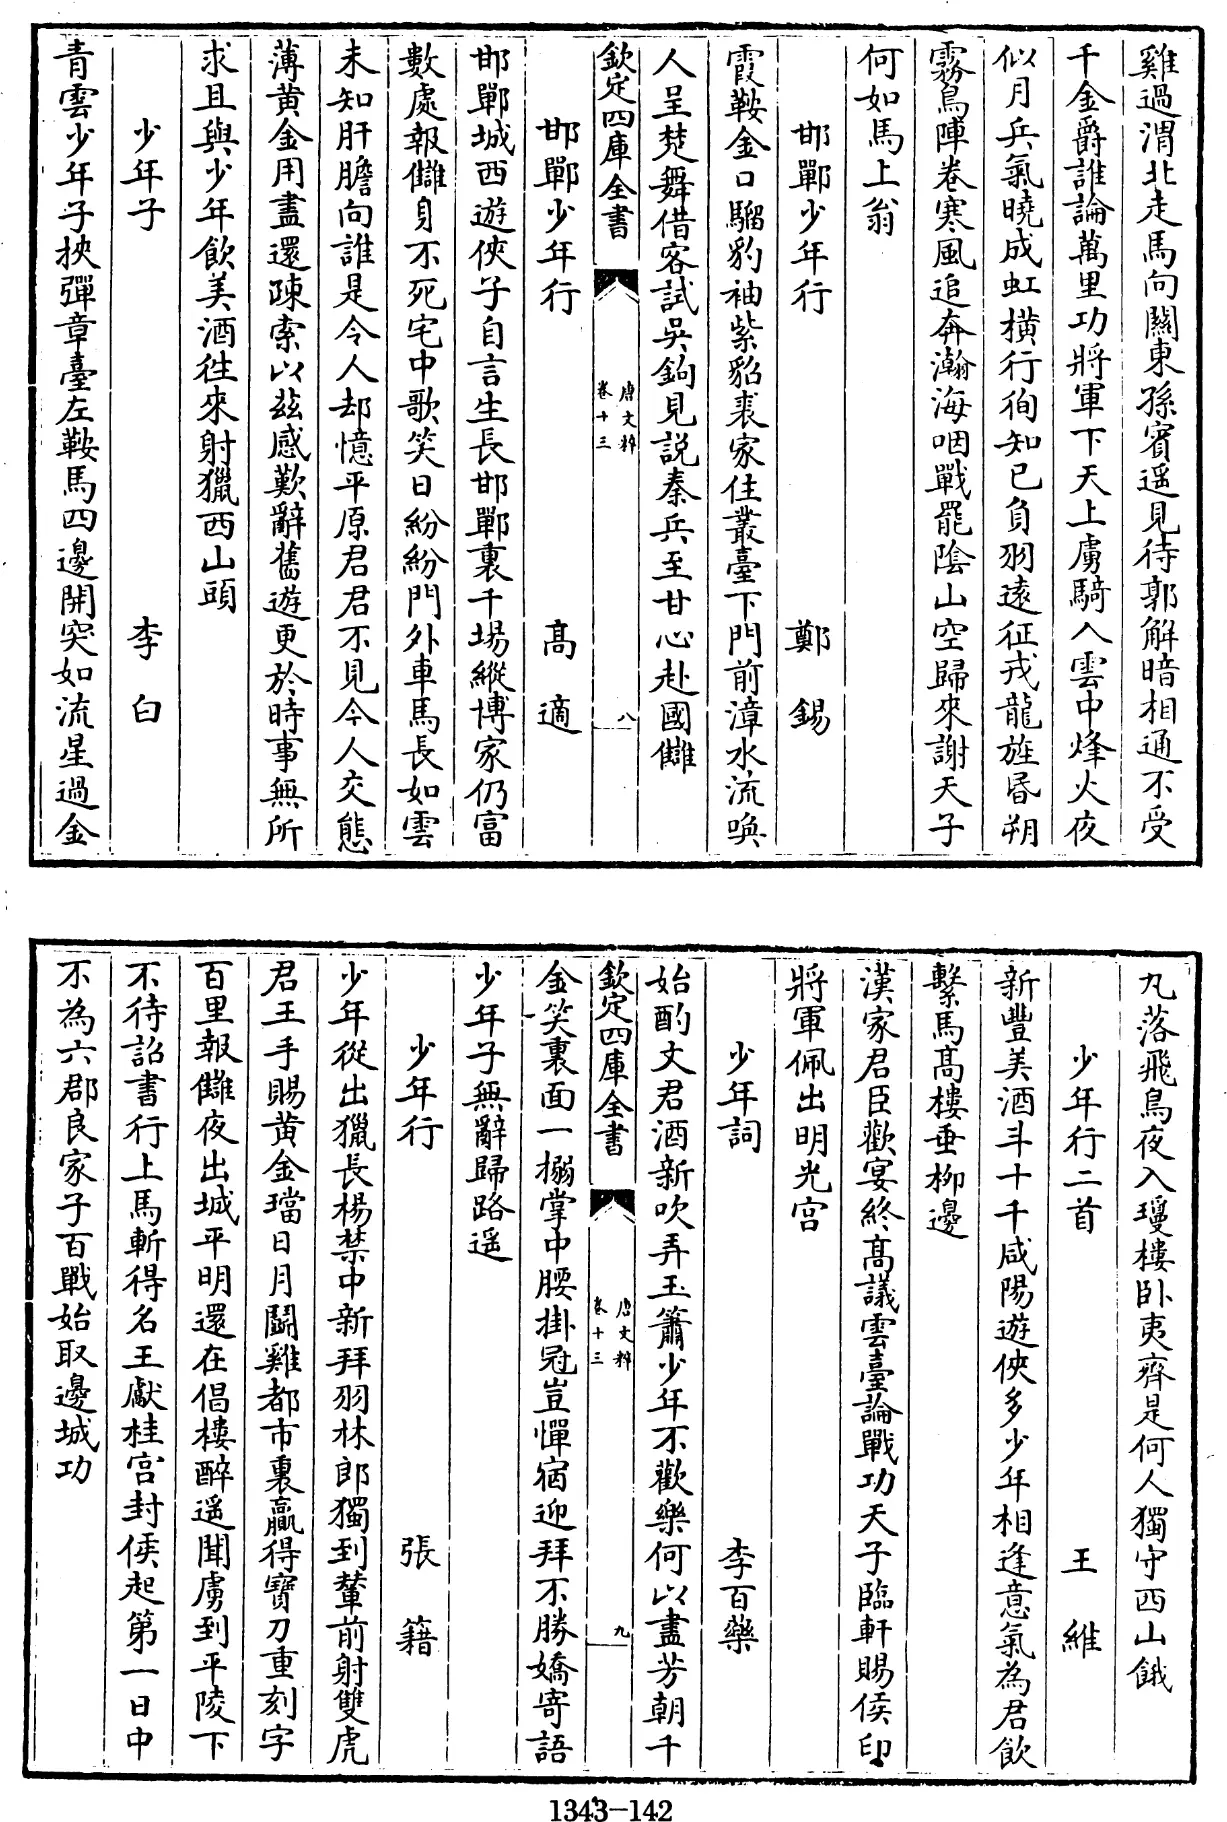 雞過渭北走馬向關東孫賓遥見待郭解暗相通不受
千金爵誰論萬里功將軍下天上虜騎入雲中烽火夜
似月兵氣曉成虹横行徇知已負羽遠征戎龍旌昬朔
霧鳥陣卷寒風追奔瀚海咽戰罷陰山空歸來謝天子
何如馬上翁
邯鄲少年行 鄭錫
霞鞍金口騮豹袖紫貂裘家住叢臺下門前漳水流喚
人呈楚舞借客試吳鉤見説秦兵至甘心赴國讎
欽定四庫全書 唐文粹 卷十三 八
邯鄲少年行 髙適
邯鄲城西遊俠子自言生長邯鄲裏千場縱博家仍富
數處報讎身不死宅中歌笑日紛紛門外車馬長如雲
未知肝膽向誰是令人却憶平原君君不見今人交態
薄黄金用盡還踈索以兹感歎辭舊遊更於時事無所
求且與少年飲美酒往來射獵西山頭
少年子 李白
青雲少年子挾彈章臺左鞍馬四邊開突如流星過金
丸落飛鳥夜入瓊樓卧夷齊是何人獨守西山餓
少年行二首 王維
新豐美酒斗十千咸陽遊俠多少年相逢意氣為君飲
繫馬髙樓垂柳邊
漢家君臣歡宴終髙議雲臺論戰功天子臨軒賜侯印
將軍佩出明光宫
少年詞 李百藥
始酌文君酒新吹弄玉簫少年不歡樂何以盡芳朝千
欽定四庫全書 唐文粹 卷十三 九
金笑裏面一搦掌中腰掛冠豈憚宿迎拜不勝嬌寄語
少年子無辭歸路遥
少年行 張籍
少年從出獵長楊禁中新拜羽林郎獨到輦前射雙虎
君王手賜黄金璫日月鬭雞都市裏贏得寶刀重刻字
百里報讎夜出城平明還在倡樓醉遥聞虜到平陵下
不待詔書行上馬斬得名王獻桂宫封侯起第一日中
不為六郡良家子百戰始取邊城功
1343-142